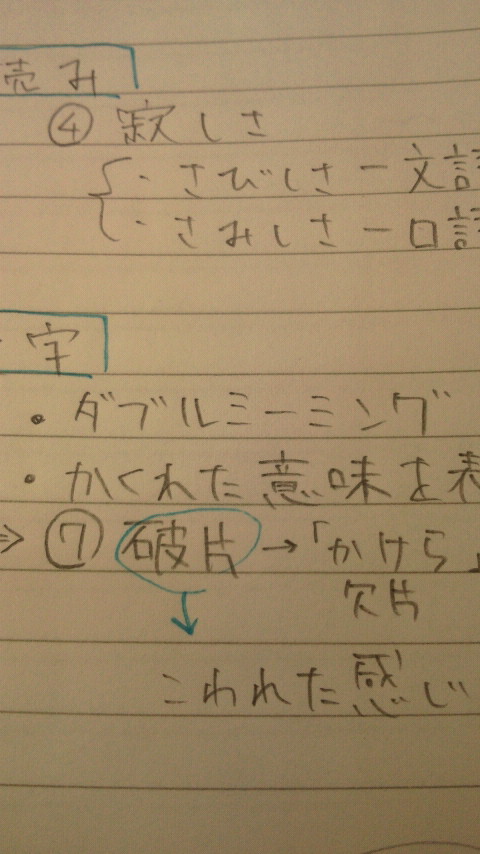 売み
④ 寂しさ
・さびしさー文語
・さみしさー口語
字
・ダブルミーミング
・かくれた意味を表
⇒ ⑦ 破片→「かけら」
欠片
こわれた感じ